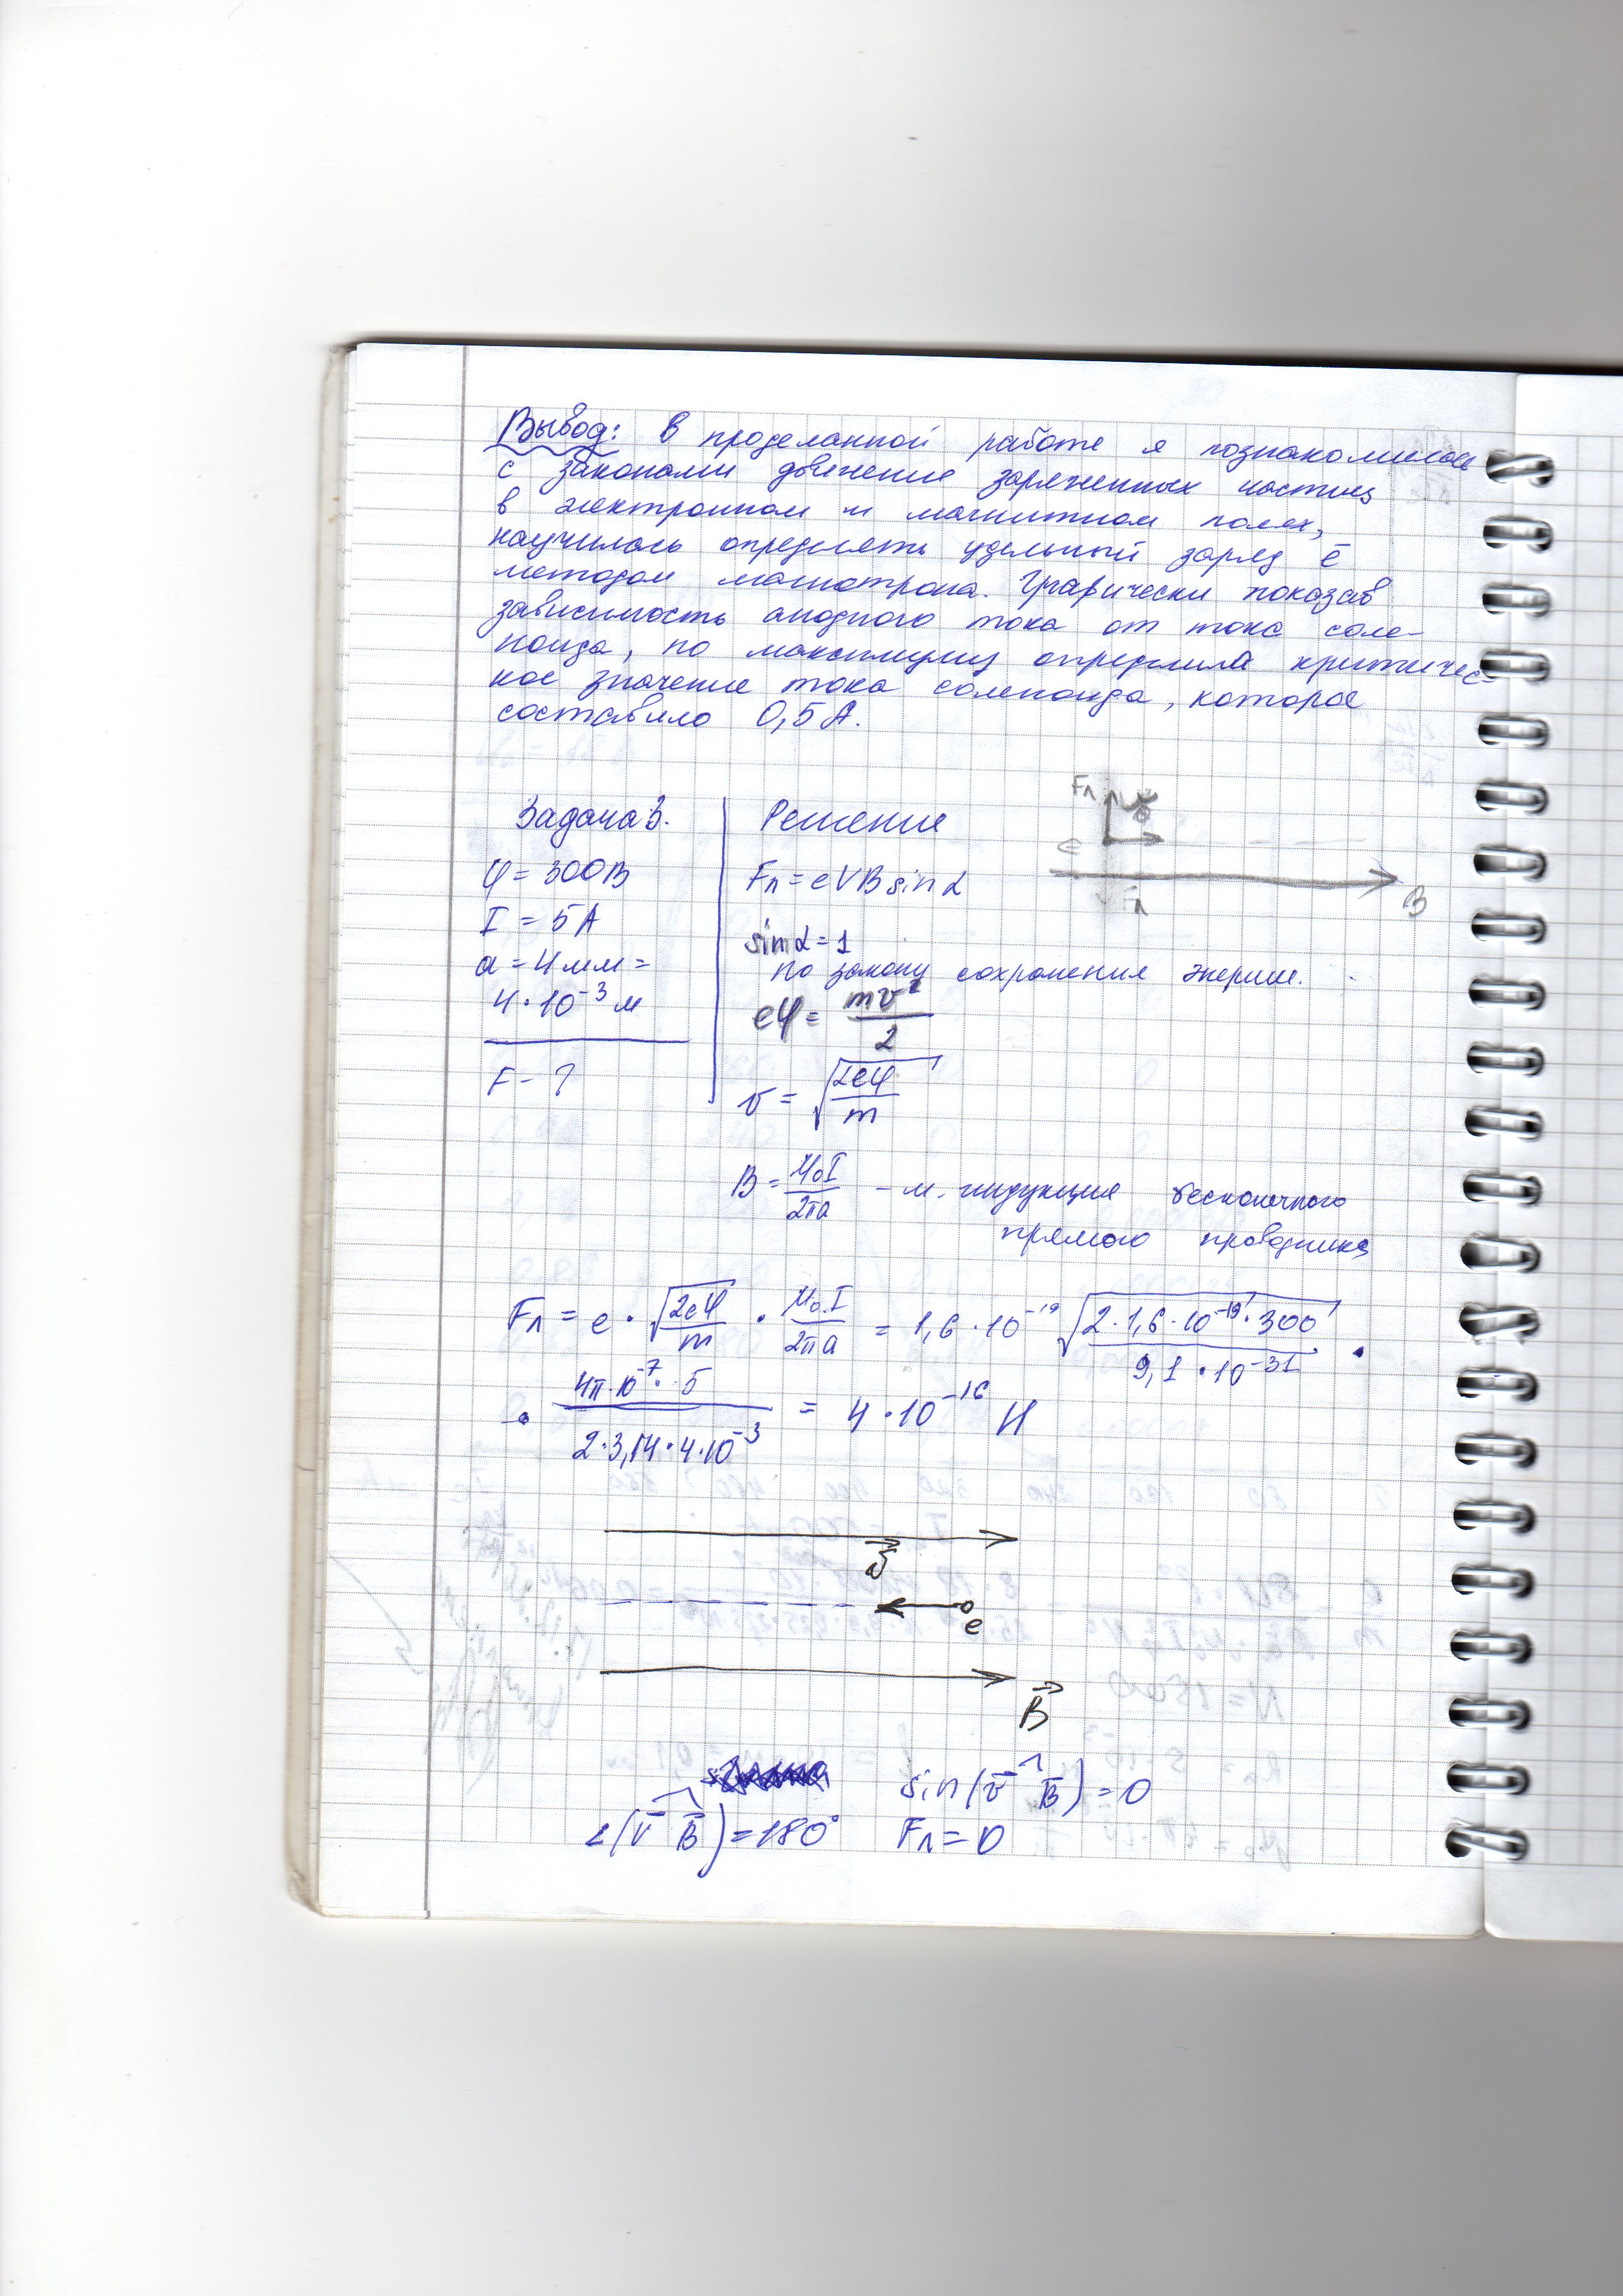 Вывод: в проделанной работе я познакомилась
с законами движение заряженных частиц
в электронном и магнитном полях,
научилась определять удельный заряд ē
методом магнотрона. Графически показав
зависимость анодного тока от тока соле-
ноида, по максимуму определила критичес-
кое значение тока соленоида, которое
составило 0,5 А.
Задача 3.
φ = 300 В
I = 5 А
a = 4 мм =
4·10⁻³ м
F - ?
Решение
Fл = eVB sin α
sin α = 1
по закону сохранения энергии.
eφ = mv²/2
v = √(2eφ/m)
B = μ₀I/2πa - м. индукция бесконечного
прямого проводника
Fл
e
B
Fл
Fл = e · √(2eφ/m) · μ₀·I/2πa = 1,6·10⁻¹⁹ √(2·1,6·10⁻¹⁹·300/9,1·10⁻³¹) ·
· 4π·10⁻⁷·5/2·3,14·4·10⁻³ = 4·10⁻¹⁶ Н
e
B⃗
sin(v̄ ^ B̄) = 0
∠(v̄ ^ B̄) = 180° Fл = 0